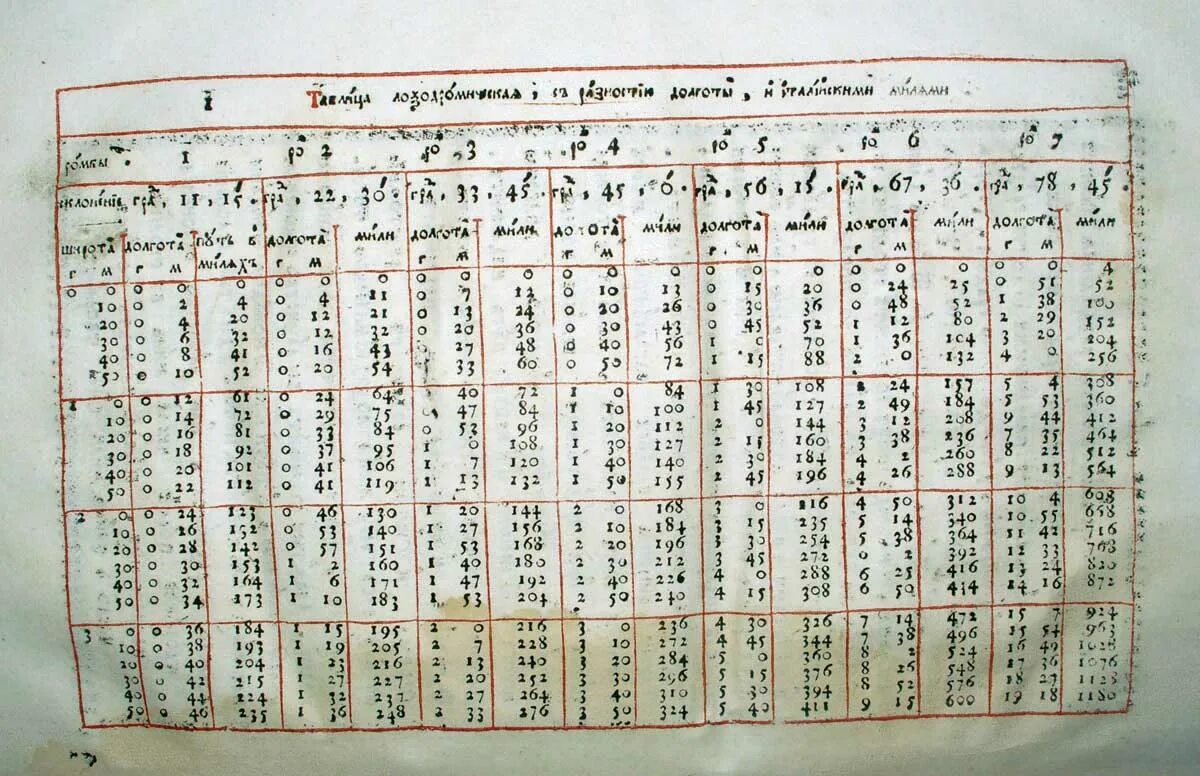 1 Таблица лоѯодромическая, съ разностїю долготы, и італїискими милями
ромбы. 1 ро 2 ро 3 ро 4 ро 5 ро 6 ро 7
склоненїе гра, 11, 15. гра, 22, 30. гра, 33, 45. гра, 45, 0. гра, 56, 15. гра, 67, 36. гра, 78, 45.
широта долгота путь в долгота мили долгота мили долгота мили долгота мили долгота мили долгота мили
г м г м миляхъ г м г м г м г м г м г м
0 0 0 0 0 0 0 0 0 0 0 0 0 0 0 0 0 0 0 0 0 0 4
10 0 2 4 0 4 11 0 7 12 0 10 13 0 15 20 0 24 25 0 51 52
20 0 4 20 0 12 21 0 13 24 0 20 26 0 30 36 0 48 52 1 38 100
30 0 6 32 0 12 32 0 20 36 0 30 43 0 45 52 1 12 80 2 29 152
40 0 8 41 0 16 43 0 27 48 0 40 56 1 0 70 1 36 104 3 20 204
50 0 10 52 0 20 54 0 33 60 0 50 72 1 15 88 2 0 132 4 0 256
1 0 0 12 61 0 24 64 0 40 72 1 0 84 1 30 108 2 24 157 5 4 308
10 0 14 72 0 29 75 0 47 84 1 10 100 1 45 127 2 49 184 5 53 360
20 0 16 81 0 33 84 0 53 96 1 20 112 2 0 144 3 12 208 9 44 412
30 0 18 92 0 37 95 1 0 108 1 30 127 2 15 160 3 38 236 7 35 464
40 0 20 101 0 41 106 1 7 120 1 40 140 2 30 184 4 2 260 8 22 512
50 0 22 112 0 41 119 1 13 132 1 50 155 2 45 196 4 26 288 9 13 564
2 0 0 24 123 0 46 130 1 20 144 2 0 168 3 0 216 4 50 312 10 4 608
10 0 26 132 0 53 140 1 27 156 2 10 184 3 15 235 5 14 340 10 55 658
20 0 28 142 0 57 151 1 53 168 2 20 196 3 30 254 5 38 364 11 42 716
30 0 30 153 1 2 160 1 40 180 2 30 212 3 45 272 0 2 392 12 33 768
40 0 32 164 1 6 171 1 47 192 2 40 226 4 0 288 6 25 416 13 24 820
50 0 34 173 1 10 183 1 53 204 2 50 240 4 15 308 6 50 414 14 16 872
3 0 0 36 184 1 15 195 2 0 216 3 0 236 4 30 326 7 14 472 15 7 924
10 0 38 193 1 19 205 2 7 228 3 10 272 4 45 344 7 38 496 15 54 963
20 0 40 204 1 23 216 2 13 240 3 20 284 5 0 360 8 2 524 16 49 1028
30 0 42 215 1 27 227 2 20 252 3 30 296 5 15 376 8 26 548 17 36 1076
40 0 44 224 1 32 237 2 27 264 3 40 310 5 30 394 8 52 576 18 27 1128
50 0 46 235 1 36 248 2 33 276 3 50 324 5 40 411 9 15 600 19 18 1180